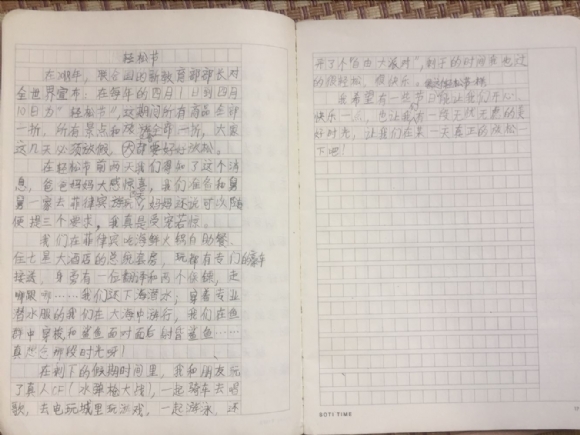 轻松节
在2019年,联合国的新教育部部长对
全世界宣布:在每年的四月1日到四月
10日为“轻松节”,这期间所有商品全部
一折,所有景点和旅游全部一折,大家
这几天必须放假,都要好好放松。
在轻松节前两天我们得知了这个消
息,爸爸妈妈大感惊喜,我们全色和舅
舅一家去菲律宾玩,妈妈还说可以随
便提三个要求,我真是受宠若惊。
我们在菲律宾吃海鲜大锅自助餐、
住七星大酒店的总统套房,玩都有专门的豪车
接送,身旁有一位翻译和两个保镖,走
哪跟哪……我们还下海潜水,穿着专业
潜水服的我们在大海中游行,我们在鱼
群中穿梭,和鲨鱼面对面
真想念那段时光呀!
在剩下的假期时间里,我和朋友玩
了真人CF(水弹枪大战),一起骑车去唱
歌,去电玩城里玩游戏,一起游泳,还
开了个“自由大派对”,剩下的时间我也过
的很轻松、很快乐。
我希望有一些节日能让我们开心、
快乐一点,也让我有一段无忧无虑的美
好时光,让我们在某一天真正的放松一
下吧!
GOTI TIME